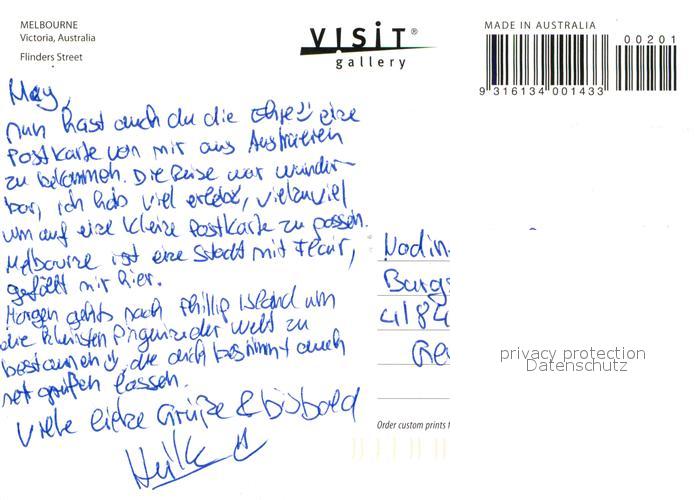 MELBOURNE
Victoria, Australia
Flinders Street
VISIT®
gallery
MADE IN AUSTRALIA
00201
9 316134 001433
May,
nun hast auch du die Ehre eine
Postkarte von mir aus Australien
zu bekommen. Die Reise war wunder-
bar, ich hab viel erlebt, vielzuviel
um auf eine kleine Postkarte zu passen.
Melbourne ist eine Stadt mit Flair,
gefällt mir hier.
Morgen gehts nach Phillip Island um
die kleinsten Pinguine der Welt zu
bestaunen, die dich bestimmt auch
net grüßen lassen.
Viele liebe Grüße & bisbald
Nadin
Burgs
4184
Ge
privacy protection
Datenschutz
Order custom prints f